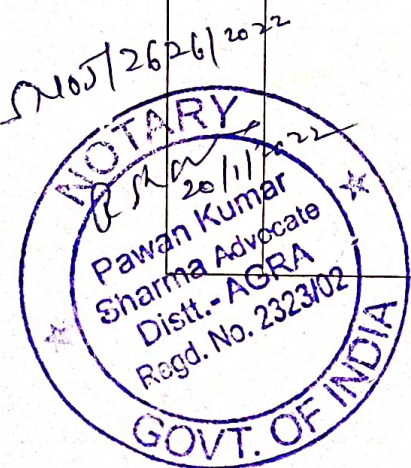 NOTARY
20/11/2022
Pawan Kumar
Sharma Advocate
Distt.- AGRA
Regd. No. 2323/02
GOVT. OF INDIA